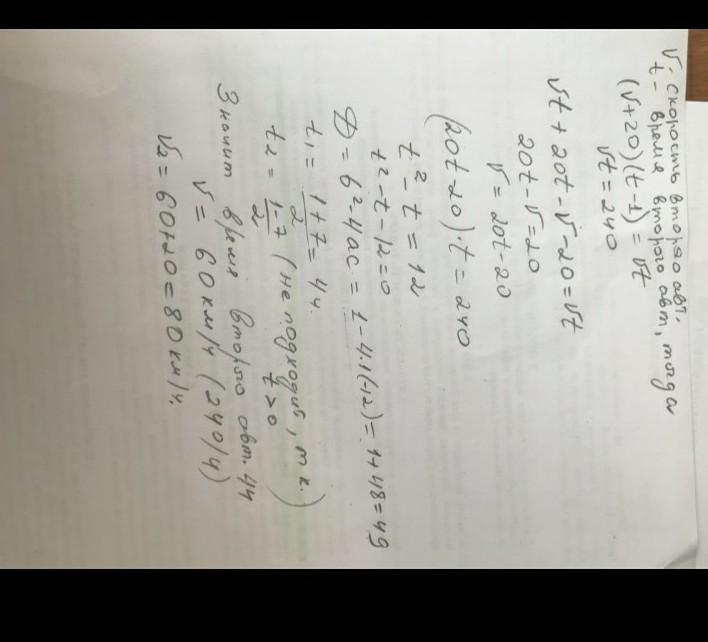 V - скорость второго авт.
t - время второго авт, тогда
(V+20)(t-1) = Vt
Vt = 240
Vt + 20t - V - 20 = Vt
20t - V = 20
V = 20t - 20
(20t-20)·t = 240
t² - t = 12
t² - t - 12 = 0
D = b² - 4ac = 1 - 4·1(-12) = 1+48 = 49
t₁ = (1+7)/2 = 4ч.
t₂ = (1-7)/2 (не подходит, т.к. t>0)
Значит время второго авт. 4ч
V = 60км/ч (240/4)
V₂ = 60+20 = 80км/ч.